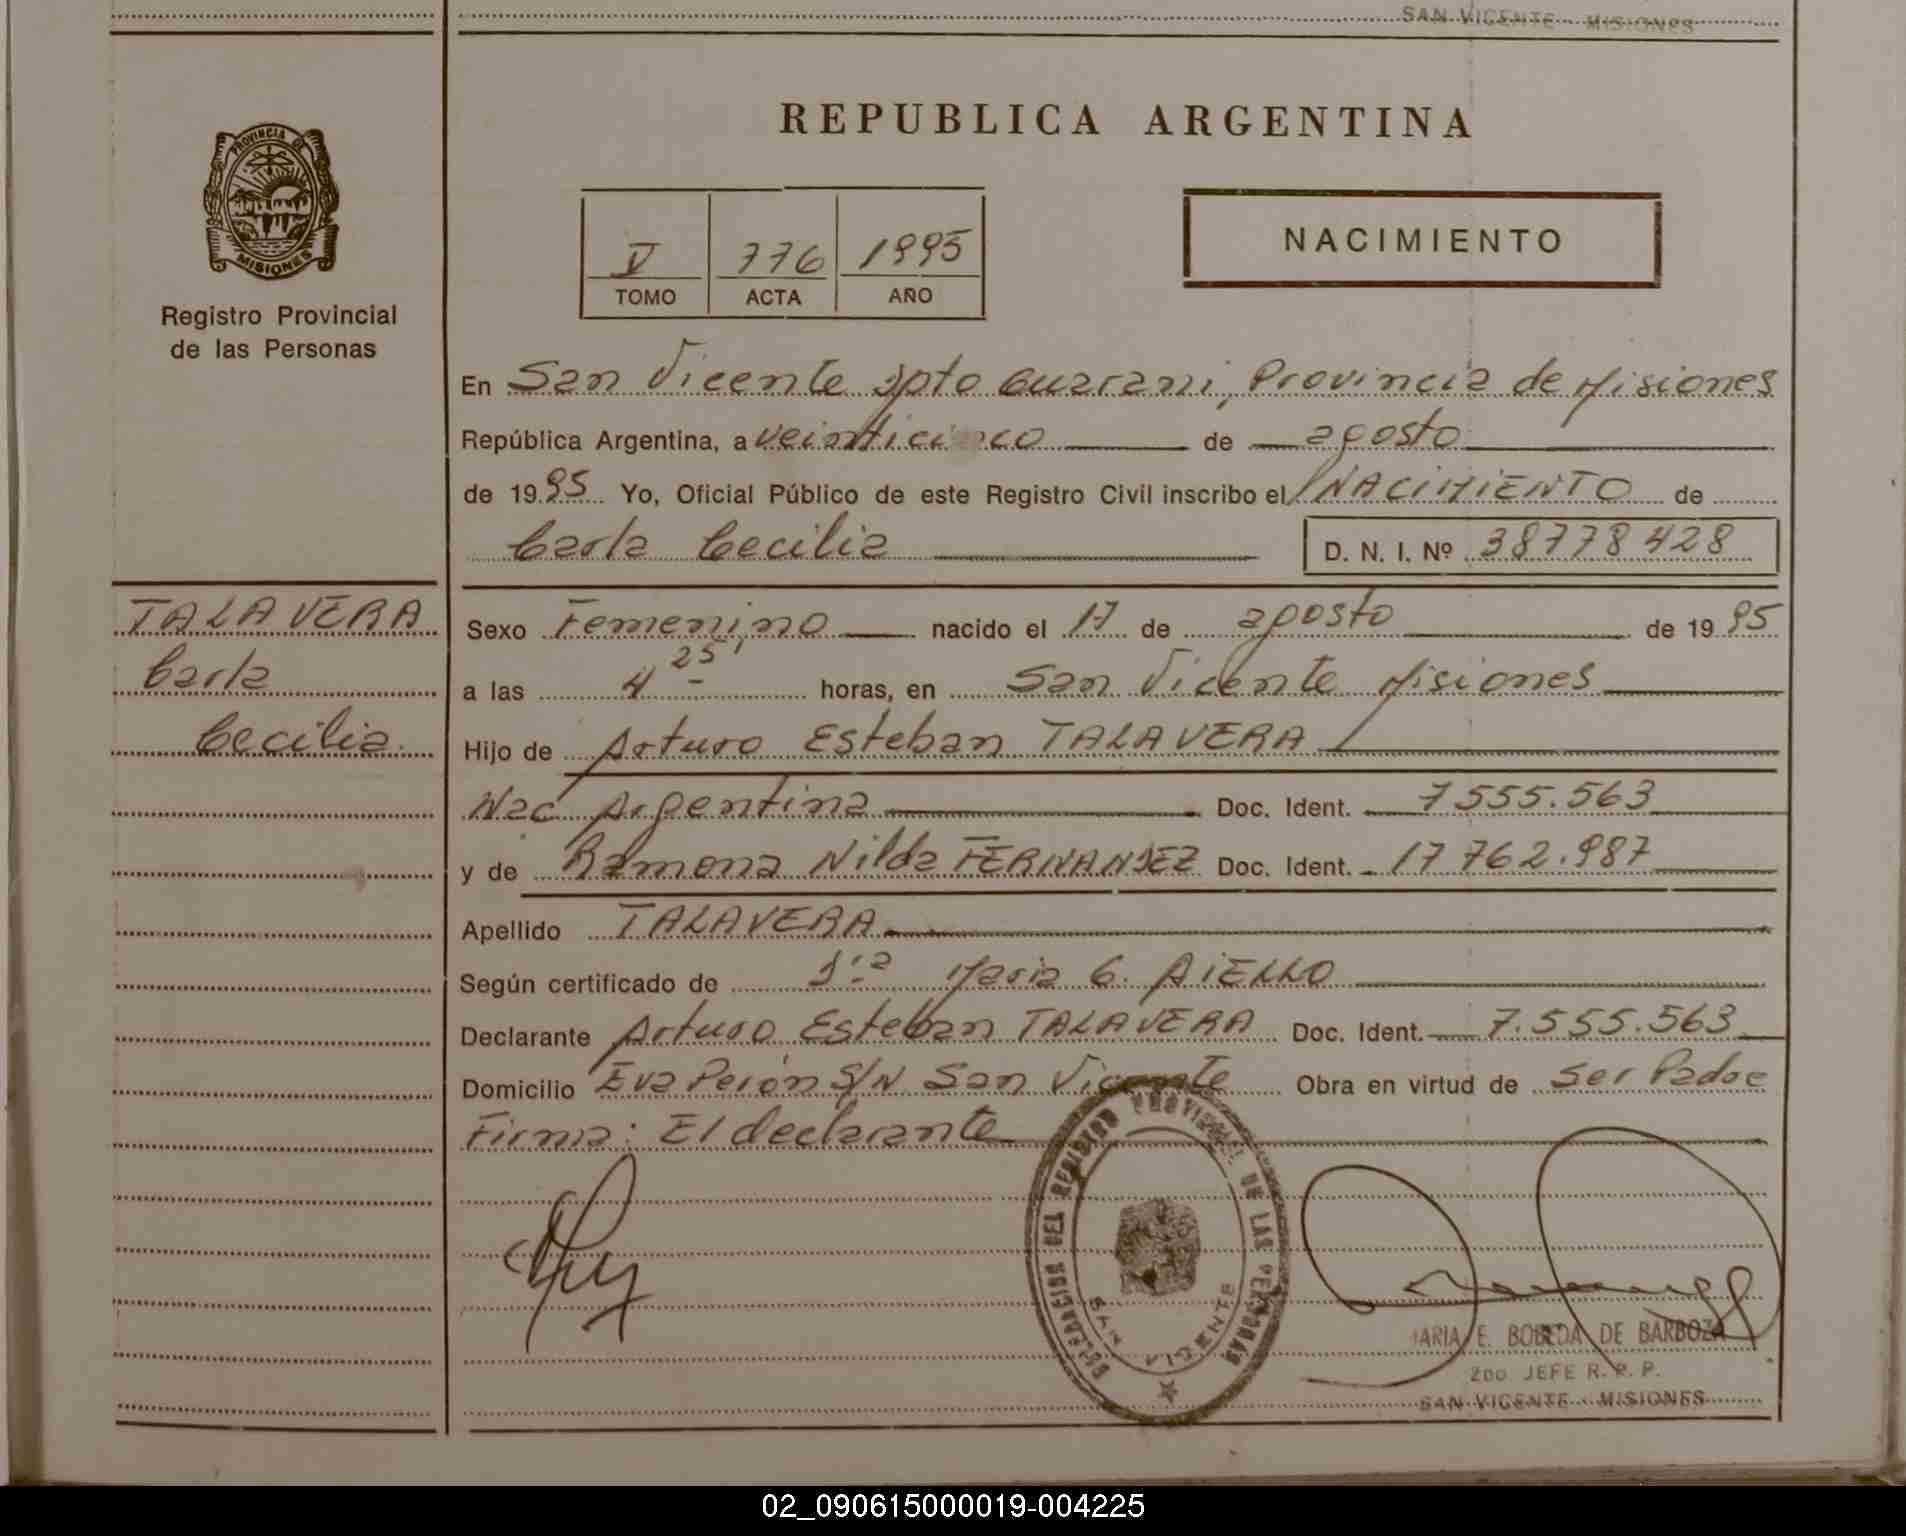 SAN VICENTE - MISIONES
REPUBLICA ARGENTINA
PROVINCIA DE
MISIONES
Registro Provincial
de las Personas
V 776 1995
TOMO ACTA AÑO
NACIMIENTO
En San Vicente Dpto Guarani, Provincia de Misiones
República Argentina, a veinticinco de agosto
de 1995 Yo, Oficial Público de este Registro Civil inscribo el NACIMIENTO de
Carla Cecilia D. N. I. Nº 38778428
TALAVERA
Carla
Cecilia
Sexo Femenino nacido el 17 de agosto de 1995
a las 4 25' horas, en San Vicente Misiones
Hijo de Arturo Esteban TALAVERA
Nac Argentina Doc. Ident. 7555.563
y de Ramona Nilda FERNANDEZ Doc. Ident. 17762.987
Apellido TALAVERA
Según certificado de Dra Maria G. AIELLO
Declarante Arturo Esteban TALAVERA Doc. Ident. 7.555.563
Domicilio Eva Perón S/N San Vicente Obra en virtud de Ser Padre
Firma: El declarante
DELEGACION DEL REGISTRO PROVINCIAL DE LAS PERSONAS
SAN VICENTE
MARIA E. BOBEDA DE BARBOZA
2DO JEFE R. P. P.
SAN VICENTE - MISIONES
02_090615000019-004225